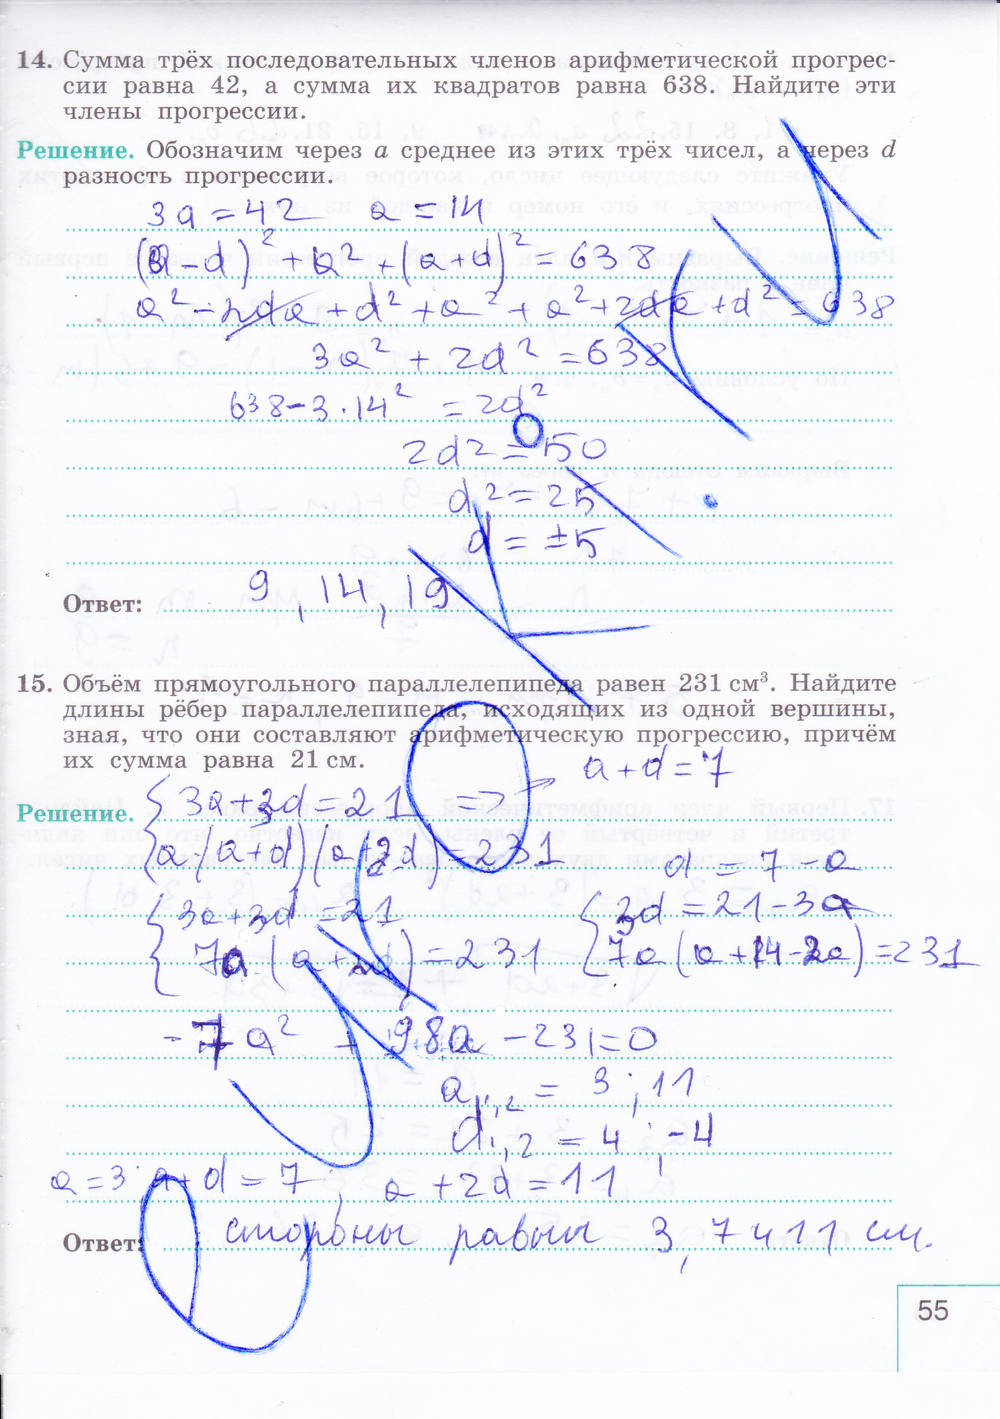 14. Сумма трёх последовательных членов арифметической прогрес-
сии равна 42, а сумма их квадратов равна 638. Найдите эти
члены прогрессии.
Решение. Обозначим через a среднее из этих трёх чисел, а через d
разность прогрессии.
3a = 42 a = 14
(a - d)² + a² + (a + d)² = 638
a² - 2da + d² + a² + a² + 2da + d² = 638
3a² + 2d² = 638
638 - 3 · 14² = 2d²
2d² = 50
d² = 25
d = ±5
Ответ: 9, 14, 19
15. Объём прямоугольного параллелепипеда равен 231 см³. Найдите
длины рёбер параллелепипеда, исходящих из одной вершины,
зная, что они составляют арифметическую прогрессию, причём
их сумма равна 21 см.
a + d = 7
Решение. 3a + 3d = 21 =>
a · (a + d)(a + 2d) = 231
d = 7 - a
3a + 3d = 21 3d = 21 - 3a
7a · (a + 2d) = 231 7a (a + 14 - 2a) = 231
-7a² + 98a - 231 = 0
a₁,₂ = 3 ; 11
d₁,₂ = 4 ; -4
a = 3 a + d = 7 ; a + 2d = 11
Ответ: стороны равны 3, 7 и 11 см.
55